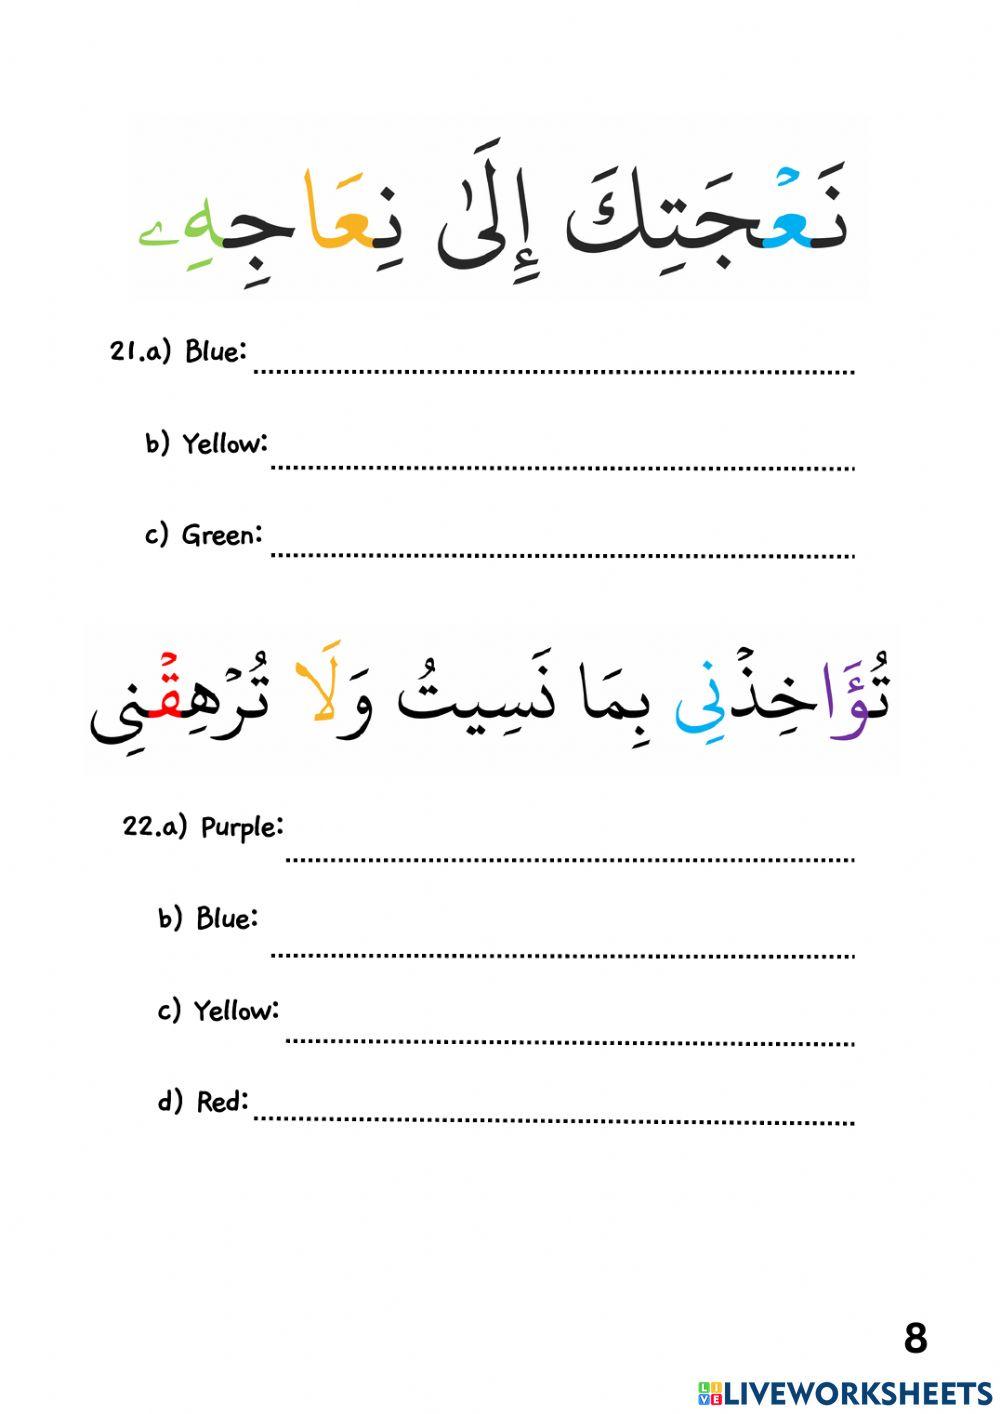 نَعۡجَتِكَ إِلَىٰ نِعَاجِهِۦ
21.a) Blue:
b) Yellow:
c) Green:
تُؤَاخِذۡنِي بِمَا نَسِيتُ وَلَا تُرۡهِقۡنِى
22.a) Purple:
b) Blue:
c) Yellow:
d) Red:
8
LIVE LIVEWORKSHEETS